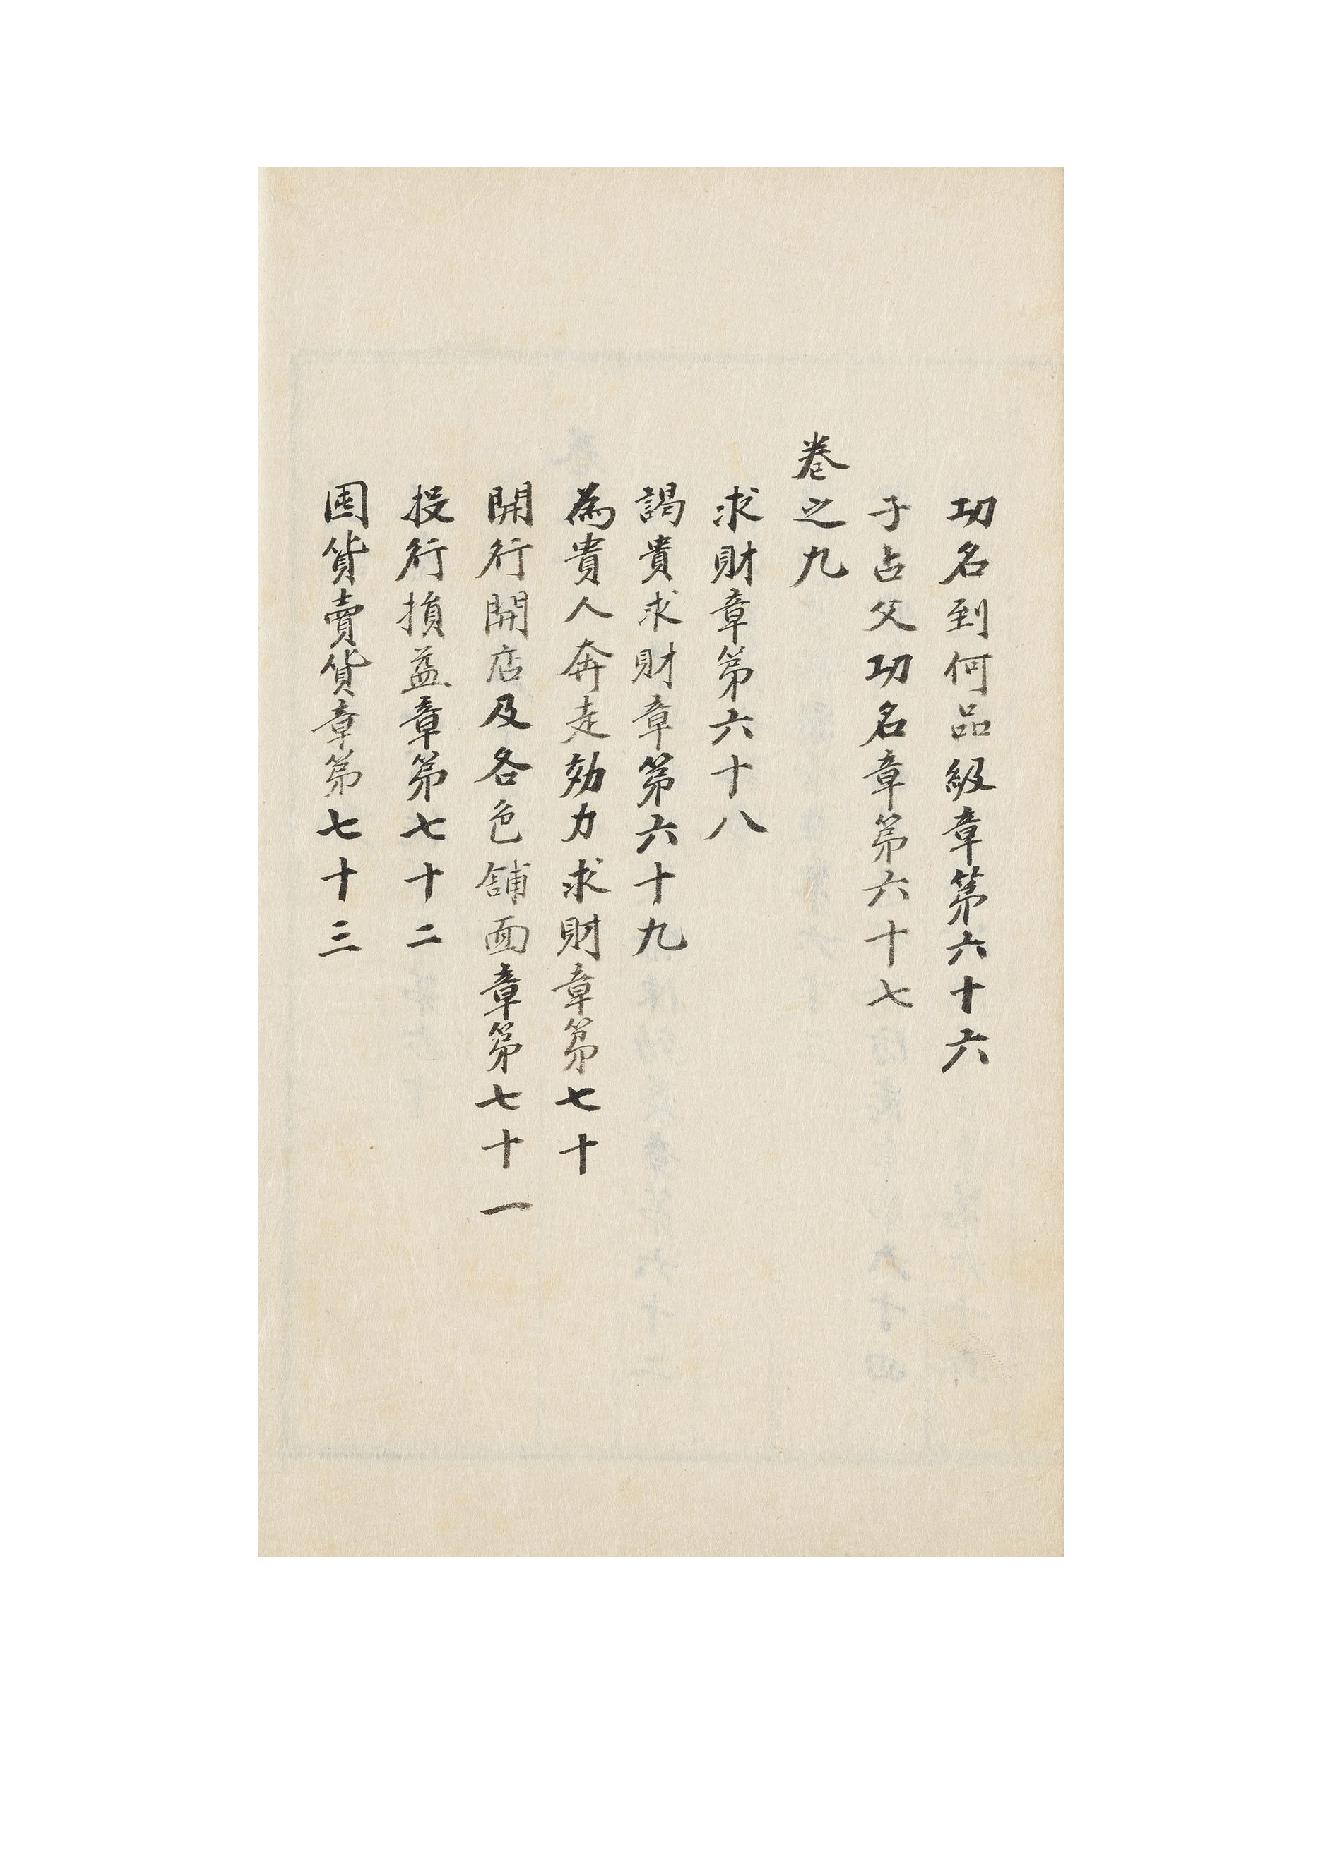 功名到何品級章第六十六
子占父功名章第六十七
卷之九
求財章第六十八
謁貴求財章第六十九
為貴人奔走効力求財章第七十
開行開店及各色舖面章第七十一
投行損益章第七十二
囤貨賣貨章第七十三